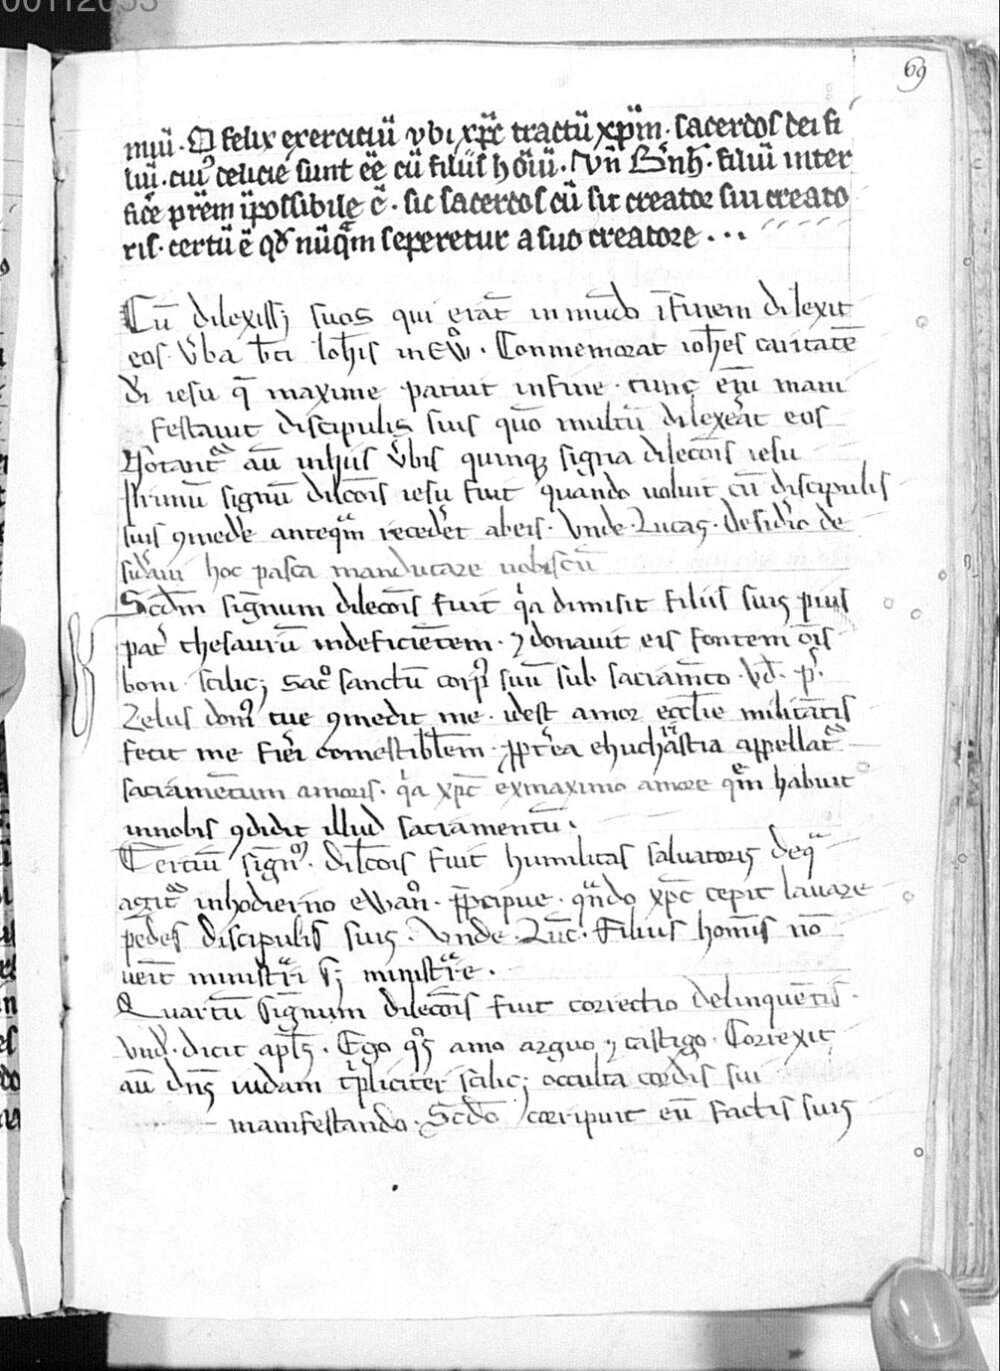 00112053
69
miū · O felix exerciciū ubi xp̄c tractū xp̄m · sacerdos dei fi
liū · cui⁹ delicie sunt ēē cū filiis hoīū · Vn̄ B̄nh · filiū inter
fice p̄rem īpossibile ē · sic sacerdos cū sit creator sui creato
ris · certū ē qd̄ nūq̄m seperetur a suo creatore · · ·
Cū dilexiss; suos qui erāt in mūdo ī finem dilexit
eos · v̄ba b̄ti Ioh̄is in Ew̄ · Conmemorat ioh̄es caritatē
d̄i iesu q̄ maxime patuit in fine · tunc em̄ mani
festauit discipulis suis quō multū dilex̄at eos
Notant᷑ aū in hiis v̄bis quinq; signa dilecc̄ōis iesu
Primū signū dilc̄ōis iesu fuit quando uoluit cū discipulis
suis ꝯmed̄e anteq̄m reced̄et ab eis · Vnde · Lucas · desid̄io de
sid̄aui hoc pasca manducare uobiscū
Scd̄m signum dilecc̄ōis fuit q̇a dimisit filiis suis pius
pat̄ thesaurū indeficiētem · ⁊ donauit eis fontem ōis
boni · scilic; sac̄ sanctū corp⁹ suū sub sacram̄to · Vd̄ · p̄s ·
Zelus dom⁹ tue ꝯmedit me · idest amor eccl̄ie militātis
fecit me fīeri comestibl̄em · ꝓpt̄ea ehucharistia appellat᷑
sacramētum amoris · q̇a xp̄c ex maximo amore quē habuit
in nobis ꝯdidit illud sacramentū ·
Terciū sign̄ · dilc̄ōis fuit humilitas saluatoris de qᵃ
agit᷑ in hodierno ewan̄ · p̄cipue · qn̄do xp̄c cepit lauare
pedes discipulis suis · Vnde · Luc̄ · Filius homīs nō
uēit ministrᵃri s; ministrᵃre ·
Quartū signum dilecc̄ōis fuit correctio delinquētis ·
vnd̄ · dicit apl̄s · Ego q̊s amo arguo ⁊ castigo · Correxit
aū dn̄s iudam tⁱpliciter scilic; occulta cordis sui
manifestando · Scd̄o corripuit eū factis suis